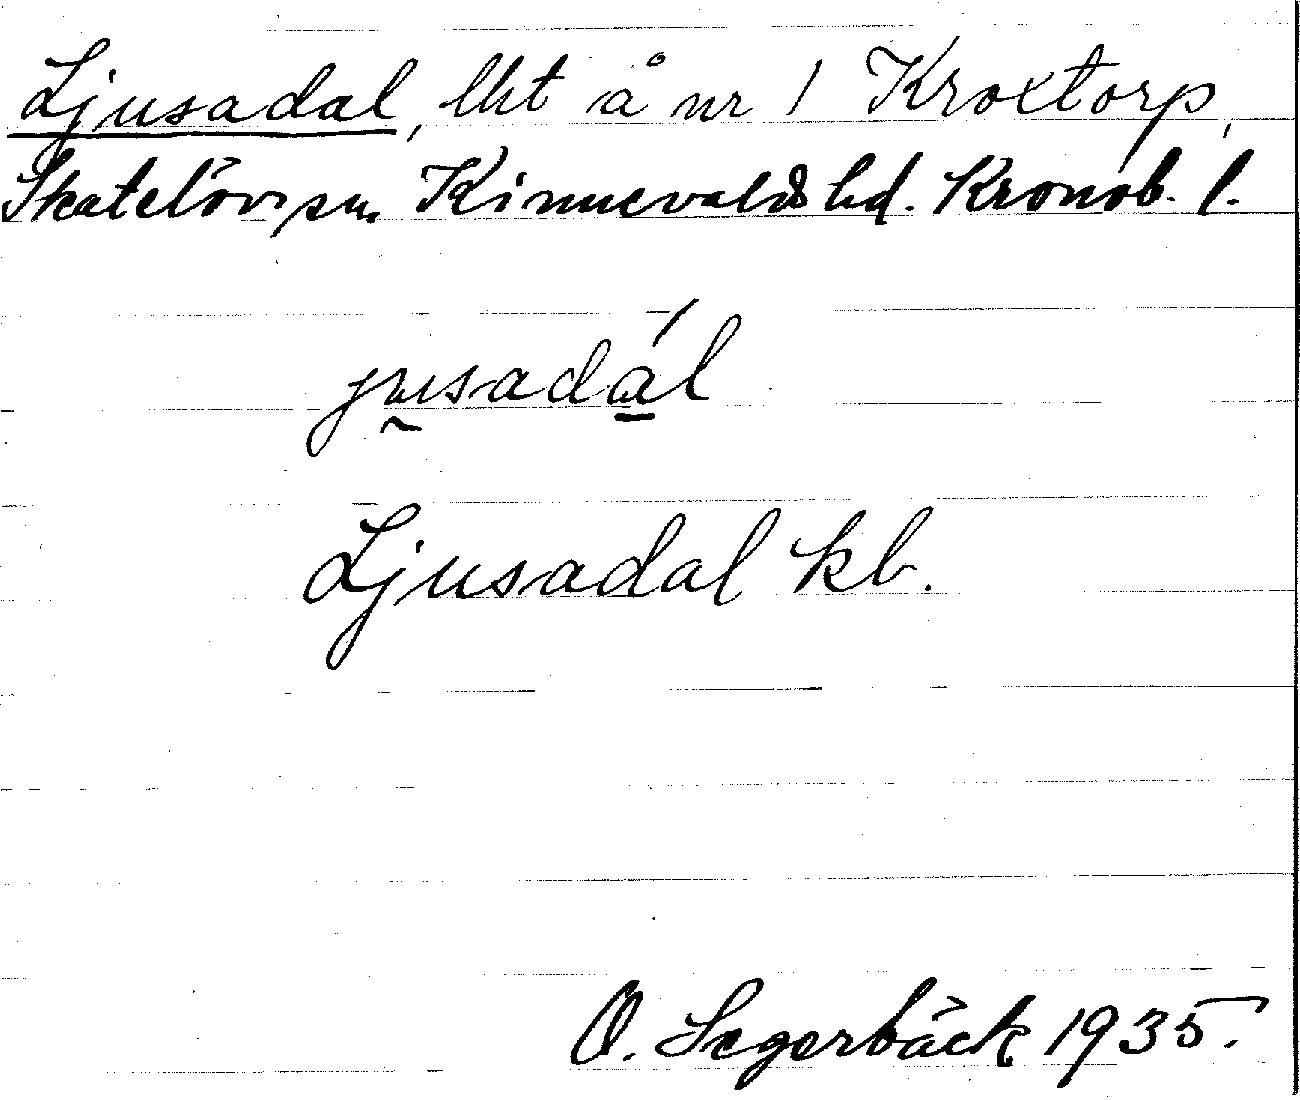 Ljusadal, lht å nr 1 Kroxtorp,
Skatelövs sn. Kinnevalds hd. Kronob. l.
jusadál
Ljusadal kb.
O. Segerbäck 1935.